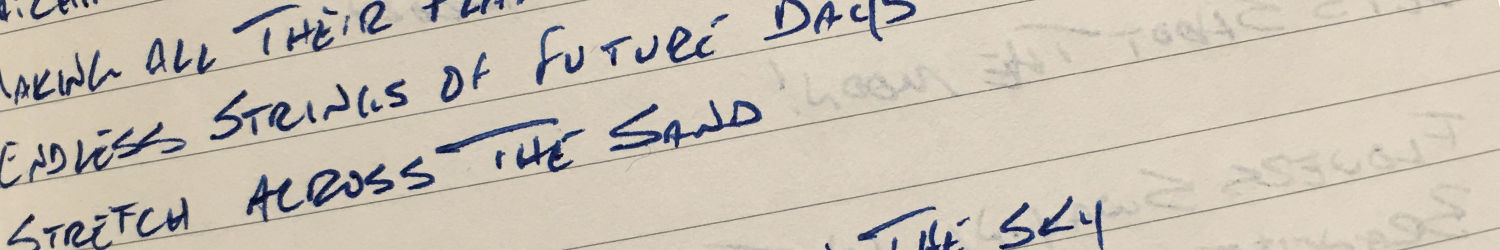 ALL THEIR
ENDLESS STRINGS OF FUTURE DAYS
STRETCH ACROSS THE SAND
THE SKY